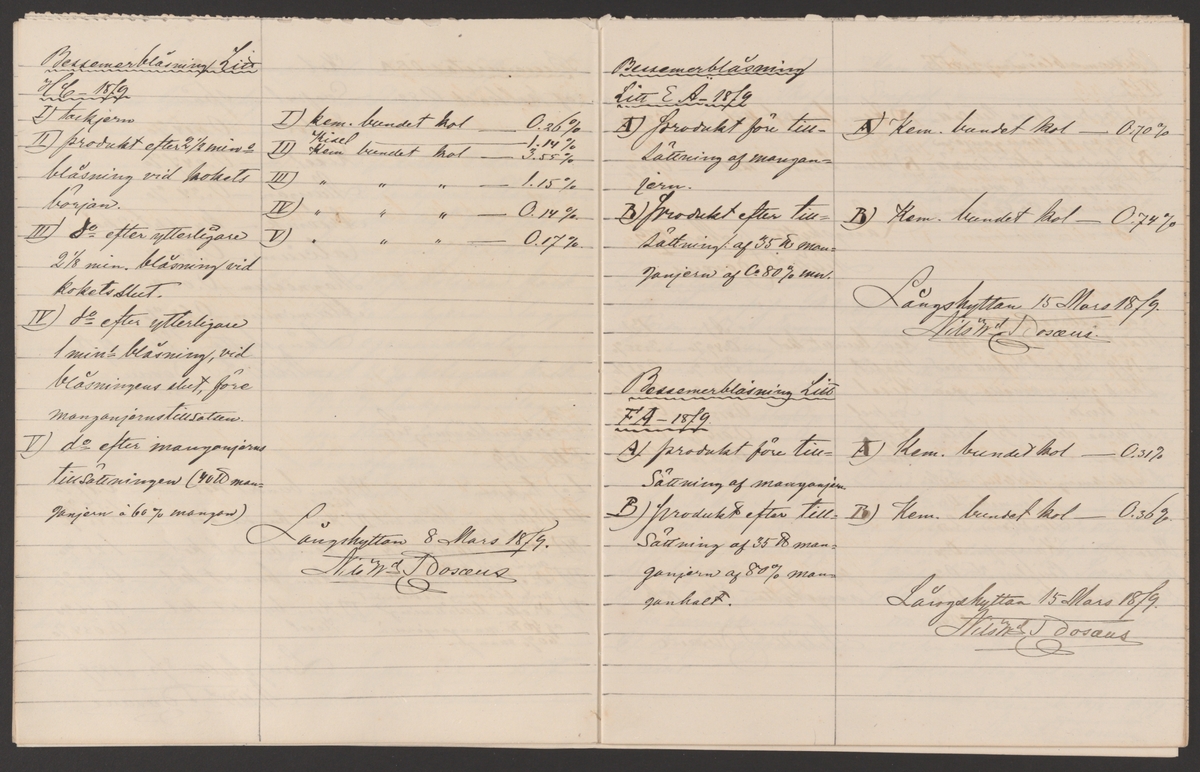 Bessemerblåsning Litt
HC – 18/9
I) tackjern
II) produkt efter 2½ min:s
blåsning vid kokets
början.
III) do efter ytterligare
2⅛ min. blåsning vid
kokets slut.
IV) do efter ytterligare
1 min:s blåsning, vid
blåsningens slut, före
manganjernstillsatsen.
V) do efter manganjerns
tillsättningen (40 ℔ man-
ganjern à 60 % mangan)
I) kem. bundet kol — 0.26 %
Kisel — 1.14 %
II) Kem bundet kol — 3.55 %
III) " " " — 1.15 %
IV) " " " — 0.14 %
V) " " " — 0.17 %
Långshyttan 8 Mars 18/9.
Nils Wd
Bessemerblåsning
Litt EÄ – 18/9
A) produkt före till-
sättning af mangan-
jern.
B) produkt efter till-
sättning af 35 ℔ man-
ganjern af Ca 80 % mn.
A) Kem. bundet kol — 0.70 %
B) Kem. bundet kol — 0.74 %
Långshyttan 15 Mars 18/9.
Nils Wd
Bessemerblåsning Litt
FA – 18/9
A) produkt före till-
sättning af manganjern
B) produkt efter till-
sättning af 35 ℔ man-
ganjern af 80 % man-
ganhalt.
A) Kem. bundet kol — 0.31 %
B) Kem. bundet kol — 0.36 %
Långshyttan 15 Mars 18/9.
Nils Wd